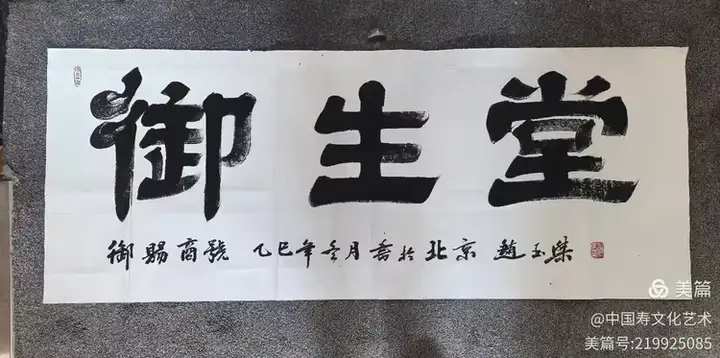 御生堂
御赐商號 乙巳年冬月書於北京 趙玉樑
美篇
@中国寿文化艺术
美篇号:219925085